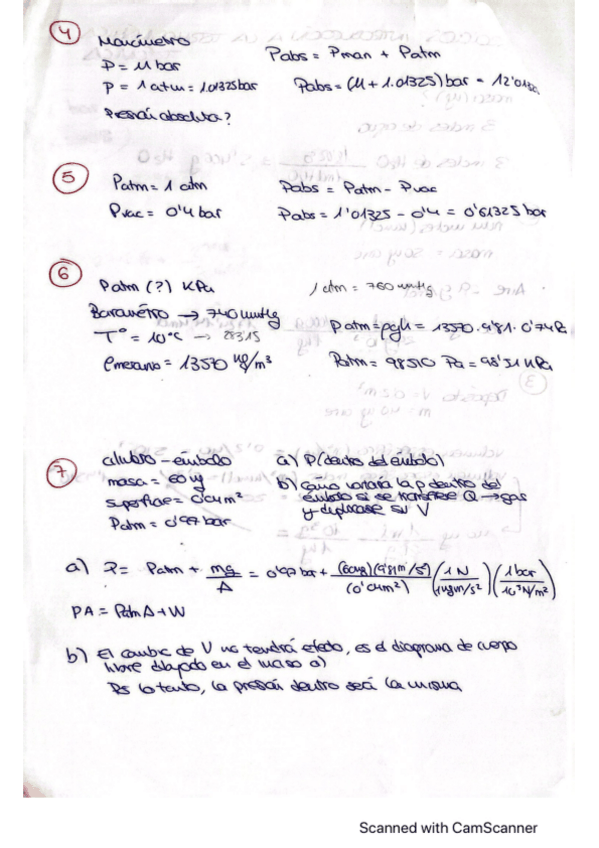 4
Manómetro
P = 11 bar
P = 1 atm = 1.01325 bar
Presión absoluta?
Pabs = Pman + Patm
Pabs = (11 + 1.01325) bar = 12'0132
5
Patm = 1 atm
Pvac = 0'4 bar
Pabs = Patm - Pvac
Pabs = 1'01325 - 0'4 = 0'61325 bar
6
Patm (?) KPa
Barómetro → 740 mmHg
Tº = 10ºC → 283'15
ρmercurio = 13570 kg/m³
1 atm = 760 mmHg
Patm = ρgh = 13570 · 9'81 · 0'74 P
Patm = 98510 Pa = 98'51 KPa
7
cilindro - émbolo
masa = 60 kg
superficie = 0'04 m²
Patm = 0'97 bar
a) P (dentro del émbolo)
b) Cómo variaría la p dentro del
émbolo si se transfiere Q → gas
y duplicase su V
a) P = Patm + mg/A = 0'97 bar + (60 kg)(9'81 m/s²)/(0'04 m²) (1 N/1 kg m/s²) (1 bar/10⁵ N/m²)
PA = Patm A + W
b) El cambio de V no tendrá efecto, es el diagrama de cuerpo
libre dibujado en el a)
Por lo tanto, la presión dentro será la misma
Scanned with CamScanner